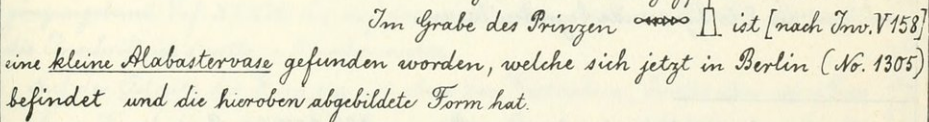 Im Grabe des Prinzen ist [nach Inv. V 158]
eine kleine Alabastervase gefunden worden, welche sich jetzt in Berlin (No. 1305)
befindet und die hieroben abgebildete Form hat.